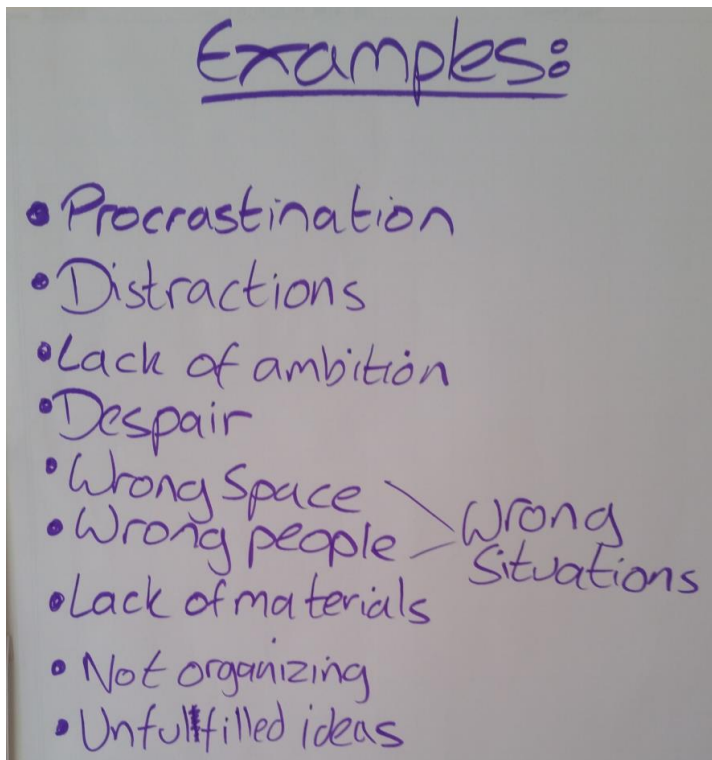 Examples:
• Procrastination
• Distractions
• Lack of ambition
• Despair
• Wrong Space
• Wrong people
Wrong
Situations
• Lack of materials
• Not organizing
• Unfullfilled ideas